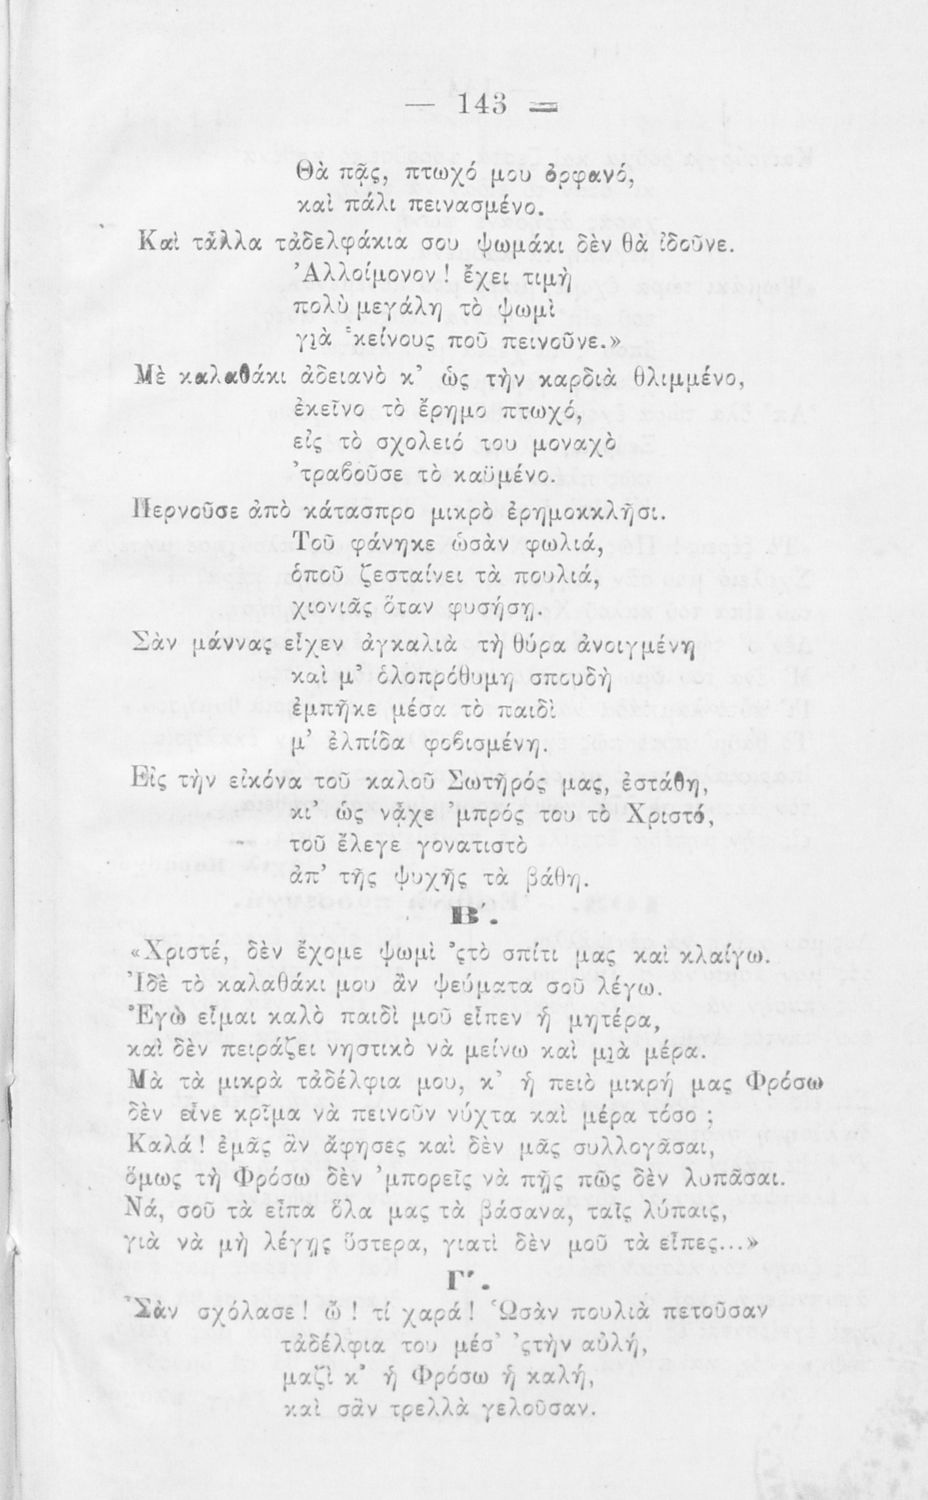 — 143 —
Θὰ πᾷς, πτωχό μου ὀρφανό,
καὶ πάλι πεινασμένο.
Καὶ τἆλλα τἀδελφάκια σου ψωμάκι δὲν θὰ ἰδοῦνε.
Ἀλλοίμονον! ἔχει τιμὴ
πολὺ μεγάλη τὸ ψωμὶ
γιὰ ᾿κείνους ποῦ πεινοῦνε.»
Μὲ καλαθάκι ἀδειανὸ κ᾿ ὡς τὴν καρδιὰ θλιμμένο,
ἐκεῖνο τὸ ἔρημο πτωχό,
εἰς τὸ σχολειό του μοναχὸ
᾿τραβοῦσε τὸ καϋμένο.
Περνοῦσε ἀπὸ κάτασπρο μικρὸ ἐρημοκκλῆσι.
Τοῦ φάνηκε ὡσὰν φωλιά,
ὁποῦ ζεσταίνει τὰ πουλιά,
χιονιᾶς ὅταν φυσήσῃ.
Σὰν μάννας εἶχεν ἀγκαλιὰ τὴ θύρα ἀνοιγμένη
καὶ μ᾿ ὁλοπρόθυμη σπουδὴ
ἐμπῆκε μέσα τὸ παιδὶ
μ᾿ ἐλπίδα φοβισμένη.
Εἰς τὴν εἰκόνα τοῦ καλοῦ Σωτῆρός μας, ἐστάθη,
κι᾿ ὡς νᾆχε ᾿μπρός του τὸ Χριστό,
τοῦ ἔλεγε γονατιστὸ
ἀπ᾿ τῆς ψυχῆς τὰ βάθη.
Β΄.
«Χριστέ, δὲν ἔχομε ψωμὶ ᾿ςτὸ σπίτι μας καὶ κλαίγω.
Ἰδὲ τὸ καλαθάκι μου ἂν ψεύματα σοῦ λέγω.
Ἐγὼ εἶμαι καλὸ παιδὶ μοῦ εἶπεν ἡ μητέρα,
καὶ δὲν πειράζει νηστικὸ νὰ μείνω καὶ μιὰ μέρα.
Μὰ τὰ μικρὰ τἀδέλφια μου, κ᾿ ἡ πειὸ μικρή μας Φρόσω
δὲν εἶνε κρῖμα νὰ πεινοῦν νύχτα καὶ μέρα τόσο ;
Καλά! ἐμᾶς ἂν ἄφησες καὶ δὲν μᾶς συλλογᾶσαι,
ὅμως τὴ Φρόσω δὲν ᾿μπορεῖς νὰ πῇς πῶς δὲν λυπᾶσαι.
Νά, σοῦ τὰ εἶπα ὅλα μας τὰ βάσανα, ταῖς λύπαις,
γιὰ νὰ μὴ λέγῃς ὕστερα, γιατὶ δὲν μοῦ τὰ εἶπες...»
Γ΄.
Σὰν σχόλασε! ὢ ! τί χαρά! Ὡσὰν πουλιὰ πετοῦσαν
τἀδέλφια του μέσ᾿ ᾿ςτὴν αὐλή,
μαζὶ κ᾿ ἡ Φρόσω ἡ καλή,
καὶ σὰν τρελλὰ γελοῦσαν.